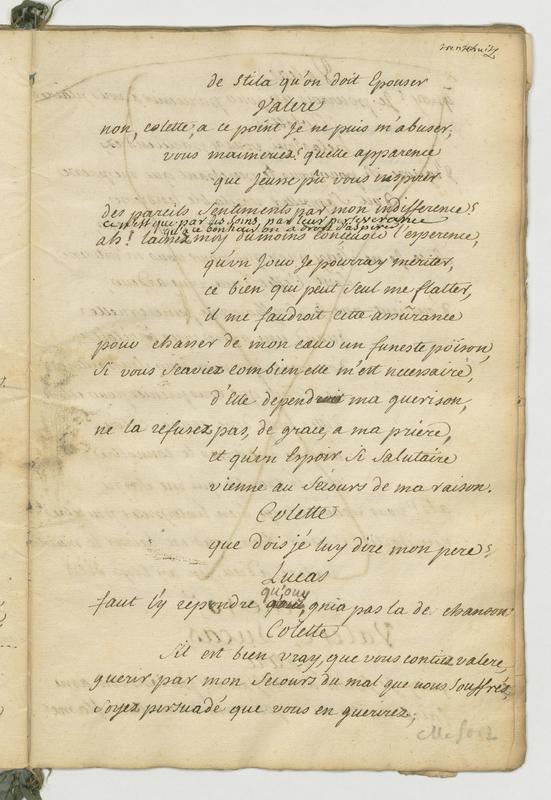 trente huit
de Stila qu'on doit Epouser
Valere
non, colette, a ce point Je ne puis m'abuser,
vous m'aimeriez? quelle apparence
que J'eusse pû vous inspirer
des pareils Sentiments par mon indifference?
ce n'est que par des soins, par leur perseverance
qu'a ce bonheur on a droit d'aspirer
ah! laissez moy du moins concevoir l'esperence,
qu'un Jour Je pourray meriter,
ce bien qui peut seul me flatter,
il me faudroit cette assûrance
pour chasser de mon cœur un funeste poison,
Si vous Scaviez combien elle m'est necessaire,
d'Elle depend ma guerison,
ne la refusez pas, de grace, a ma priere,
et qu'un Espoir Si Salutaire
vienne au Secours de ma raison.
Colette
que dois je luy dire mon pere?
Lucas
faut l'y repondre qu'ouy, gnia pas la de chanson
Colette
S'il est bien vray, que vous contiez valere,
guerir par mon Secours du mal que vous Souffréz,
Soyez persuadé que vous en guerirez;